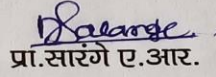 प्रा.सारंगे ए.आर.